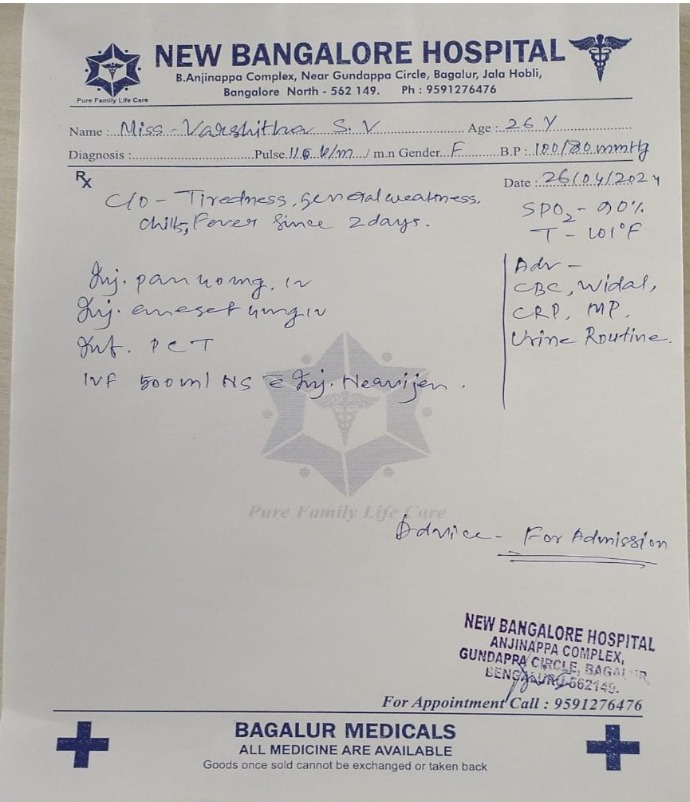 NEW BANGALORE HOSPITAL
B.Anjinappa Complex, Near Gundappa Circle, Bagalur, Jala Hobli,
Bangalore North - 562 149. Ph : 9591276476
Pure Family Life Care
Name : Miss - Varshitha S. V Age : 26 Y
Diagnosis : Pulse 116 b/m / m.n Gender F B.P : 100/80 mmHg
Rx
Date : 26/04/2024
C/O - Tiredness, general weakness,
chills, Fever since 2 days.
SPO2 - 90%
T - 101°F
Inj. pan 40mg. iv
Inj. emeset 4mg iv
Inf. PCT
IVF 500ml NS c Inj. Neavijen.
Adv -
CBC, Widal,
CRP, MP,
Urine Routine.
Pure Family Life Care
Advice - For Admission
NEW BANGALORE HOSPITAL
ANJINAPPA COMPLEX,
GUNDAPPA CIRCLE, BAGALUR,
BENGALURU-562149.
For Appointment Call : 9591276476
BAGALUR MEDICALS
ALL MEDICINE ARE AVAILABLE
Goods once sold cannot be exchanged or taken back